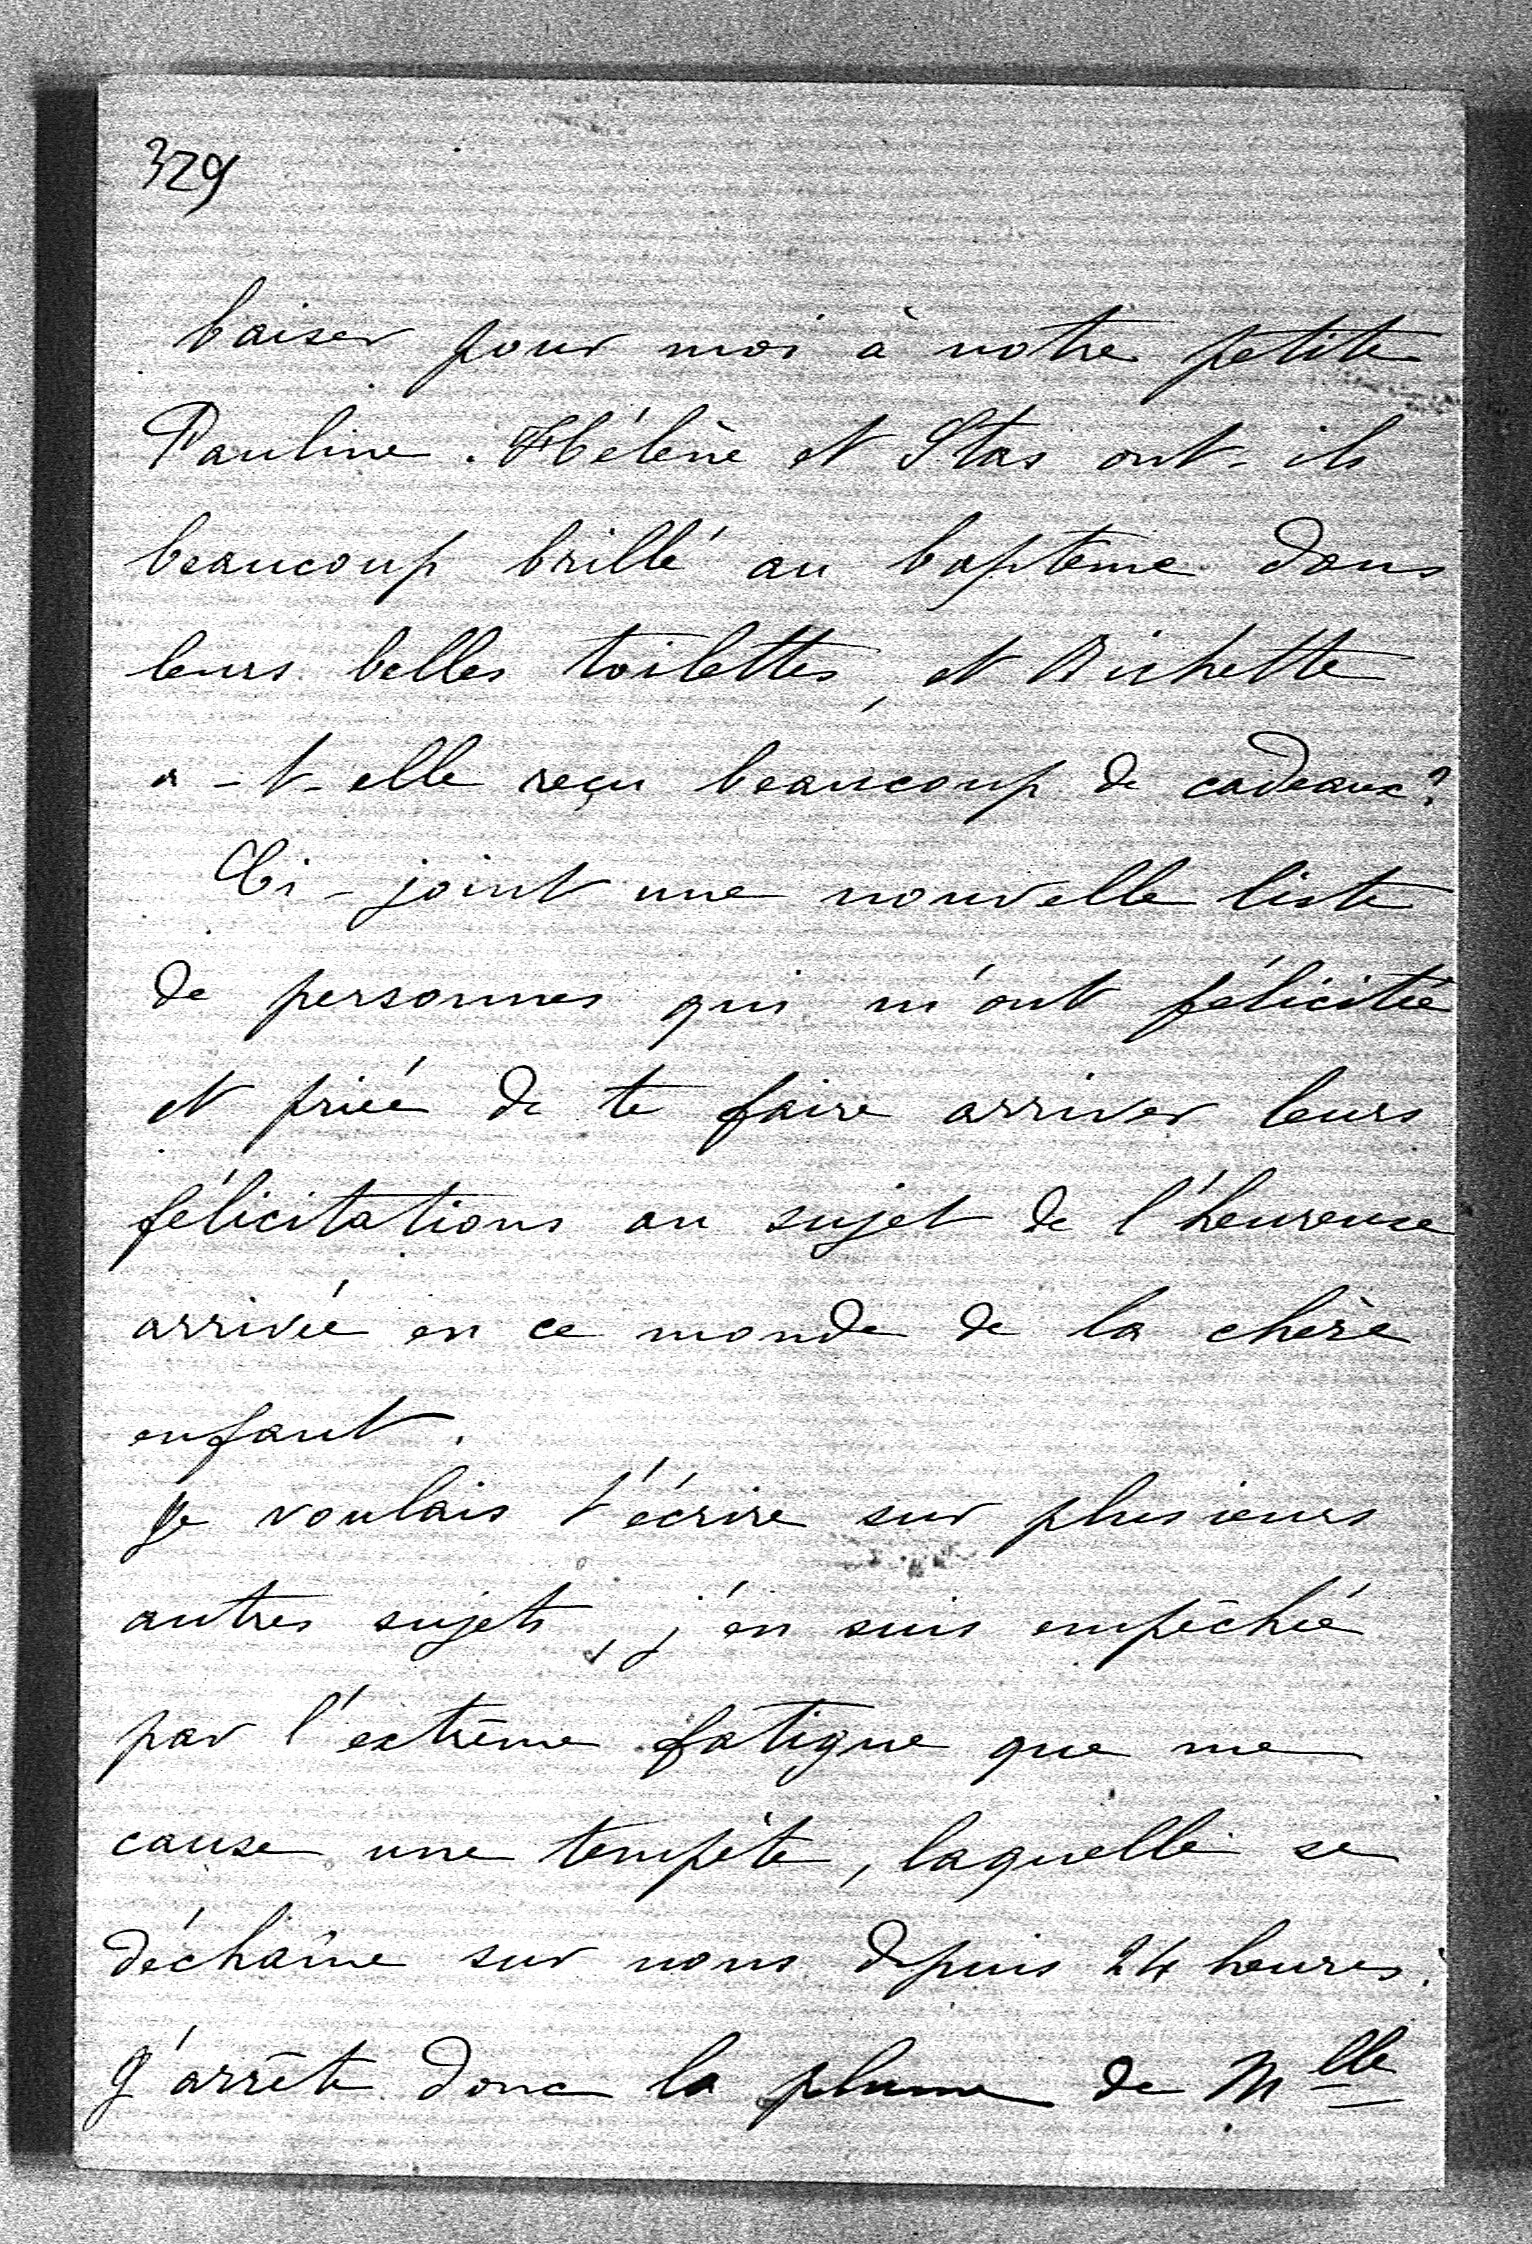 329
baiser pour moi à notre petite
Pauline. Hélène et Stas ont-ils
beaucoup brillé au baptême dans
leurs belles toilettes, et Bichette
a-t-elle reçu beaucoup de cadeaux?
Ci-joint une nouvelle liste
de personnes qui m'ont félicitée
et priée de te faire arriver leurs
félicitations au sujet de l'heureuse
arrivée en ce monde de la chère
enfant.
Je voulais t'écrire sur plusieurs
autres sujets, j'en suis empêchée
par l'extrême fatigue que me
cause une tempête, laquelle se
déchaîne sur nous depuis 24 heures.
J'arrête donc la plume de Mlle